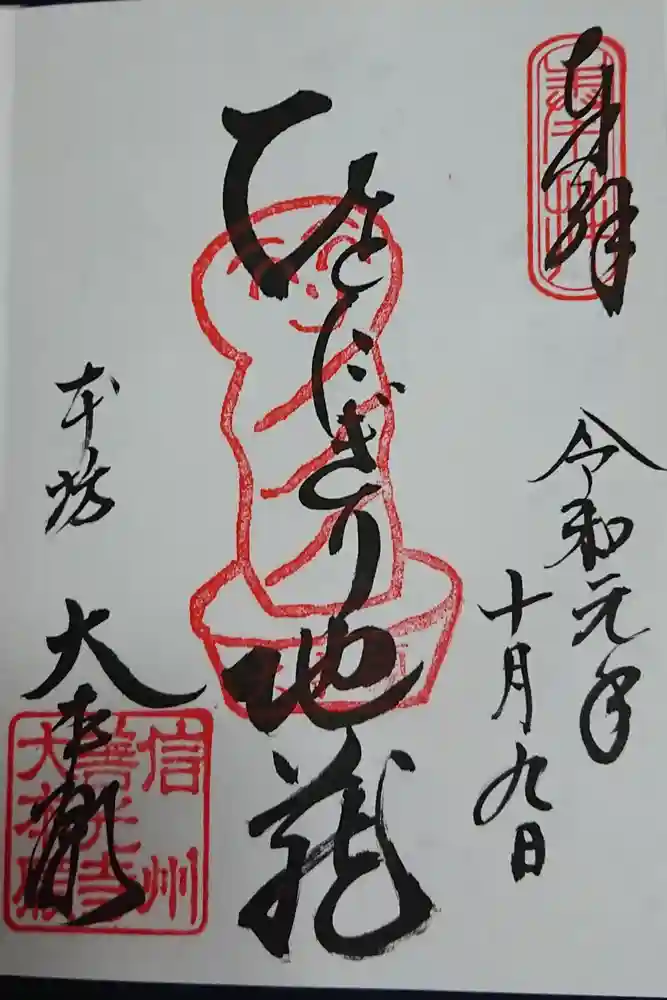 奉拝
令和元年
十月九日
ひとにぎり地蔵
本坊
大本願
信州
善光寺
大本願